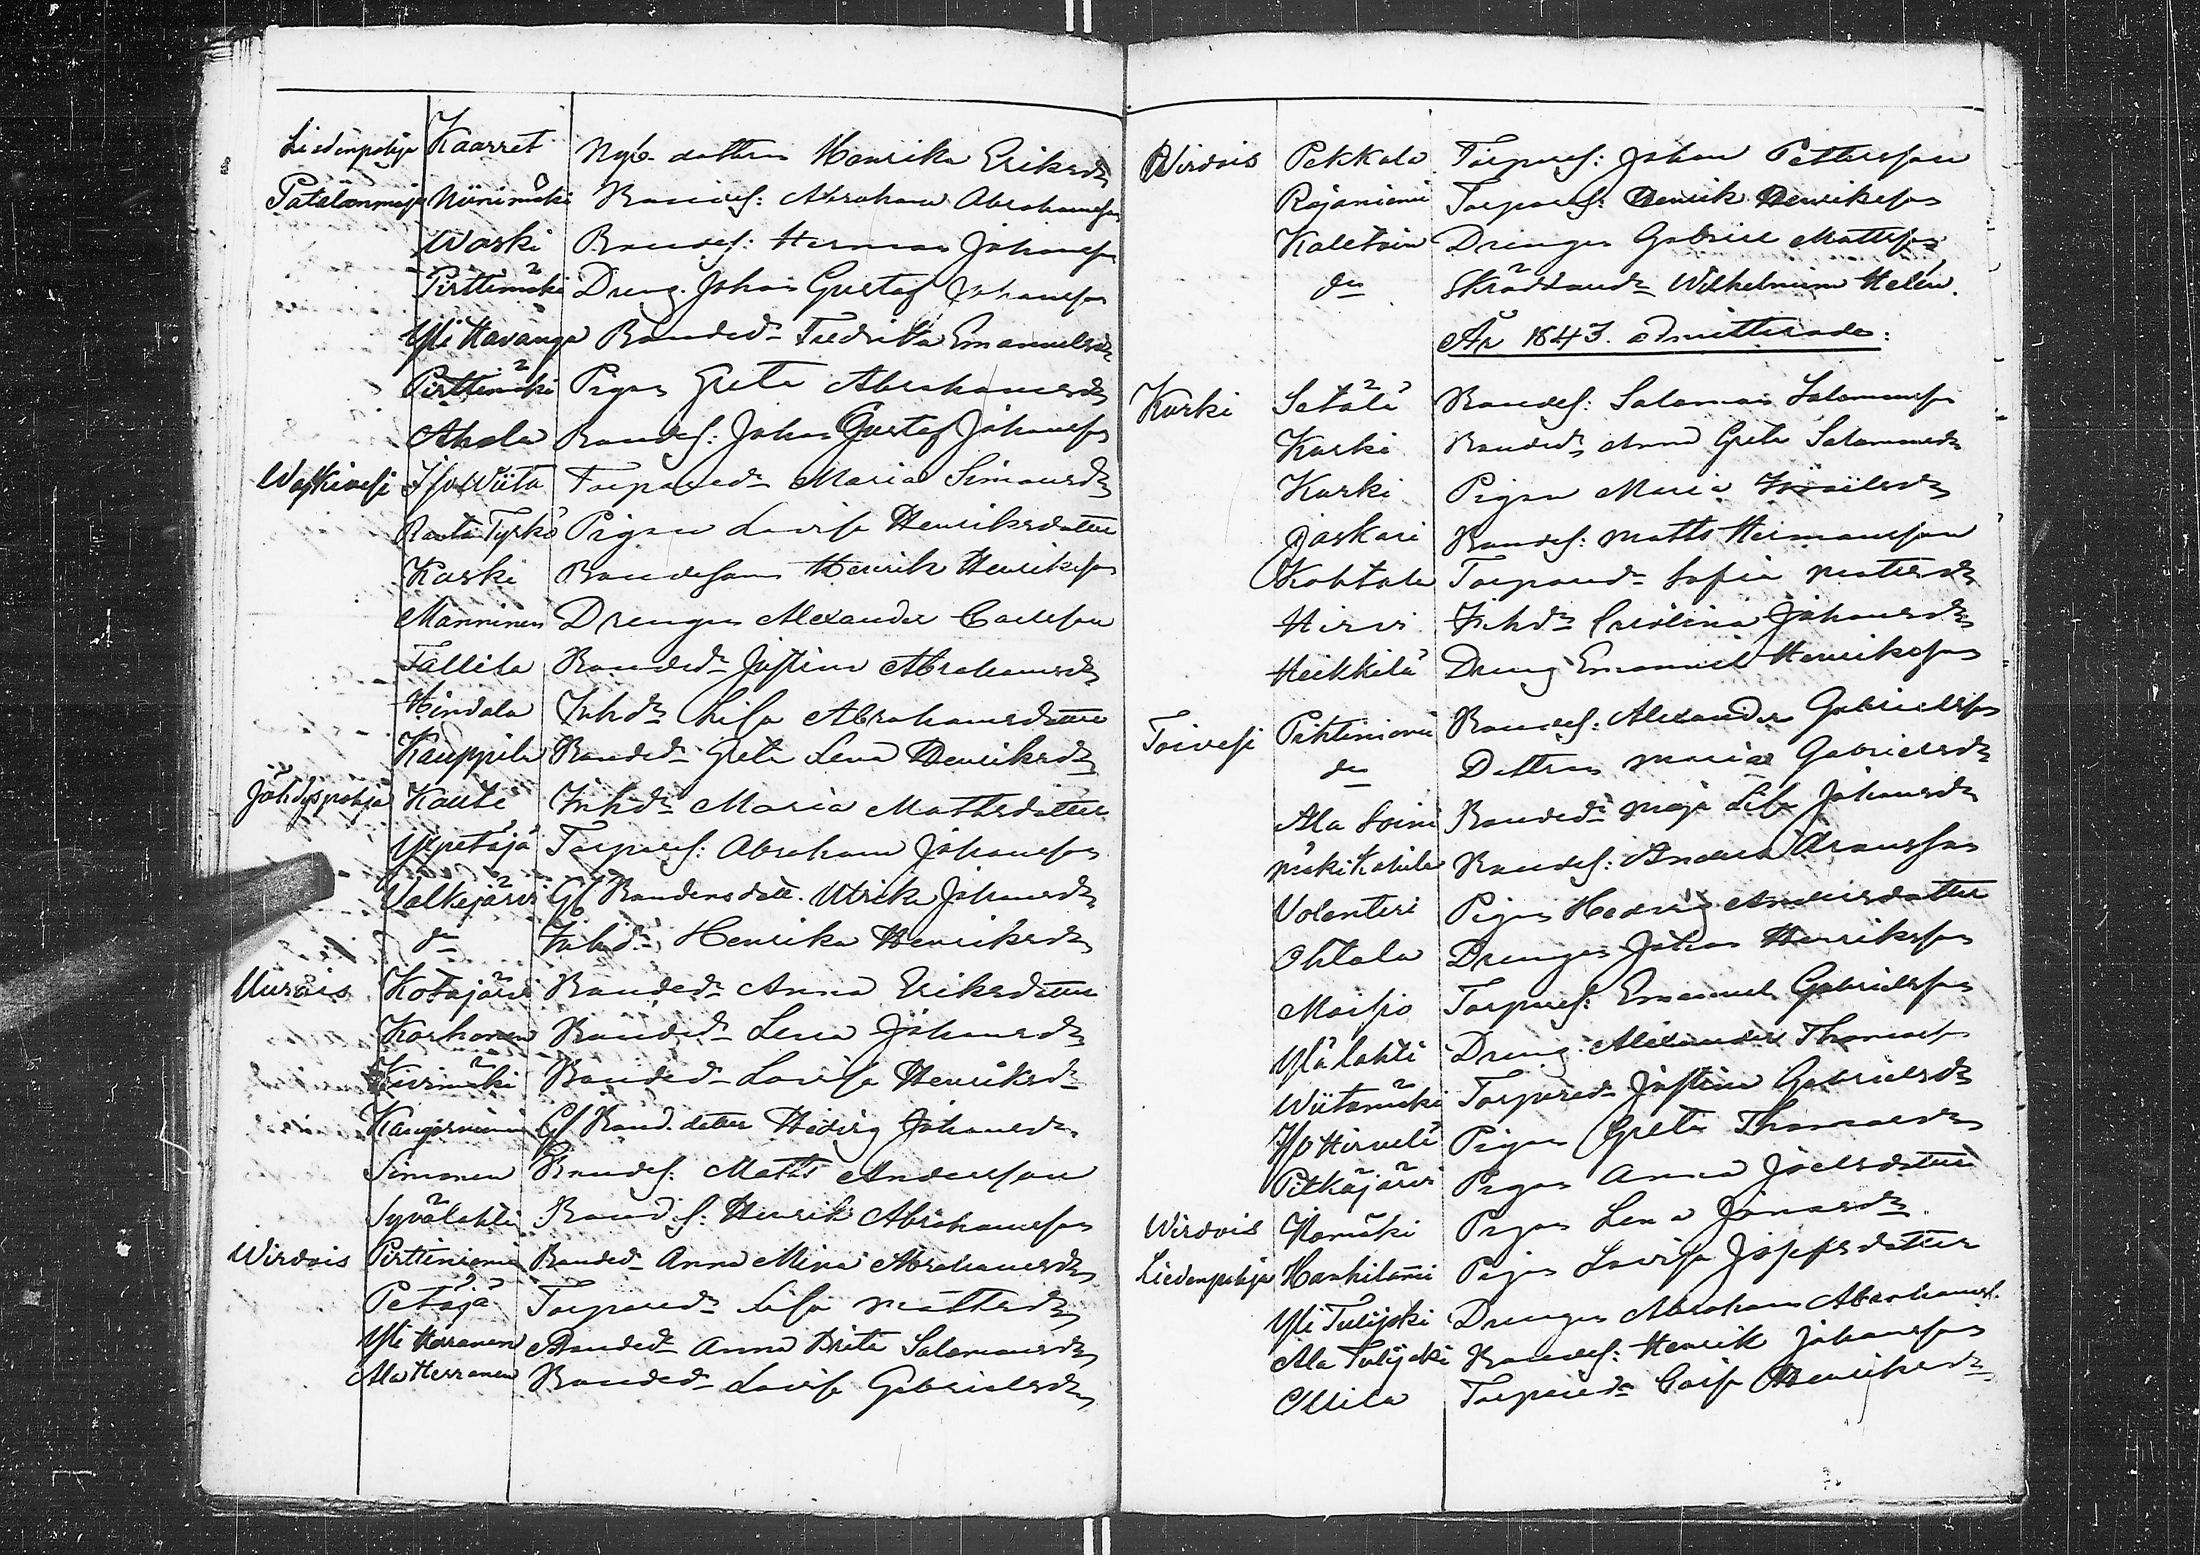 Liedenpohja Kaarret Nyb. dottren Henrika Eriksdr
Patalanmaja Niinimäki Bondes: Abraham Abrahamsson
Waski Bondes: Herman Johansson
Pirttimäki Dreng. Johan Gustaf Johansson
Yli Havanga Bonded:r Fredrika Emanuelsdr
Pirttimäki Pigan Greta Abrahamsdr
Ahola Bondes: Johan Gustaf Johansson
Waskivesi Iso Wiita Torpared:r Maria Simonsdr
Rauta Tyrkö Pigan Lovisa Henriksdotter
Koski Bondeson Henrik Henriksson
Manninen Drengen Alexander Carlsson
Tallila Bonded:r Justina Abrahamsdr
Hindala Inhd:r Lisa Abrahamsdotter
Kauppila Bonded:r Greta Lena Henriksdr
Jähdyspohja Kauti Inhd:r Maria Mattsdotter
Ylipetäjä Torpares: Abraham Johansson
Valkejärvi Gl. Bondens dott. Ulrika Johansdr
do Inhd:r Henrika Henriksdr
Uurais Kotajärvi Bonded:r Anna Eriksdotter
Korhonen Bonded:r Lena Johansdr
Kivimäki Bonded:r Lovisa Henriksdr
Kangasniemi Gl. Bond. dotter Hedvig Johansdr
Simonen Bondes: Matts Andersson
Syvälahti Bondes: Henrik Abrahamsson
Wirdois Pirttiniemi Bonded:r Anna Mina Abrahamsdr
Petäjä Torpared:r Lisa Mattsdr
Yli Herranen Bonded:r Anna Brita Salomonsdr
Ala Herranen Bonded:r Lovisa Gabrielsdr
Wirdois Pekkala Torpares: Johan Pettersson
Rajaniemi Torpares: Henrik Henriksson
Koletoin Drengen Gabriel Mattsson
do Skräddared:r Wilhelmina Helén.
År 1843. admitterade:
Kurki Setälä Bondes: Salomon Salomonsson
Kurki Bonded:r Anna Greta Salomonsdr
Kurki Pigan Maria Israelsdr
Jaskari Bondes: Matts Hermansson
Kohtala Torpared:r Sofia Mattsdr
Hirvi Inhd:r Carolina Johansdr
Heikkilä Dreng Emanuel Henriksson
Toivesi Pihtiniemi Bondes: Alexander Gabrielsson
do Dottren Maria Gabrielsdr
Ala Soini Bonded:r Maja Lisa Johansdr
Mäki Kahila Bondes: Anders Aronsson
Volanteri Pigan Hedvig Andersdotter
Ohtola Drengen Johan Henriksson
Maisio Torpares: Emanuel Gabrielsson
Ylä lahti Dreng. Alexander Thomass:
Wiitamäki Torpared:r Justina Gabrielsdr
Iso Hirveli Pigan Greta Thomasdr
Pitkäjärvi Pigan Anna Joelsdotter
Wirdois Pigan Lena Jonasdr
Liedenpohja Hankilami Pigan Lovisa Josefsdotter
Yli Tulijoki Drengen Abraham Abrahams:
Ala Tulijoki Bondes: Henrik Johansson
Ollila Torpared:r Caisa Henriksdr